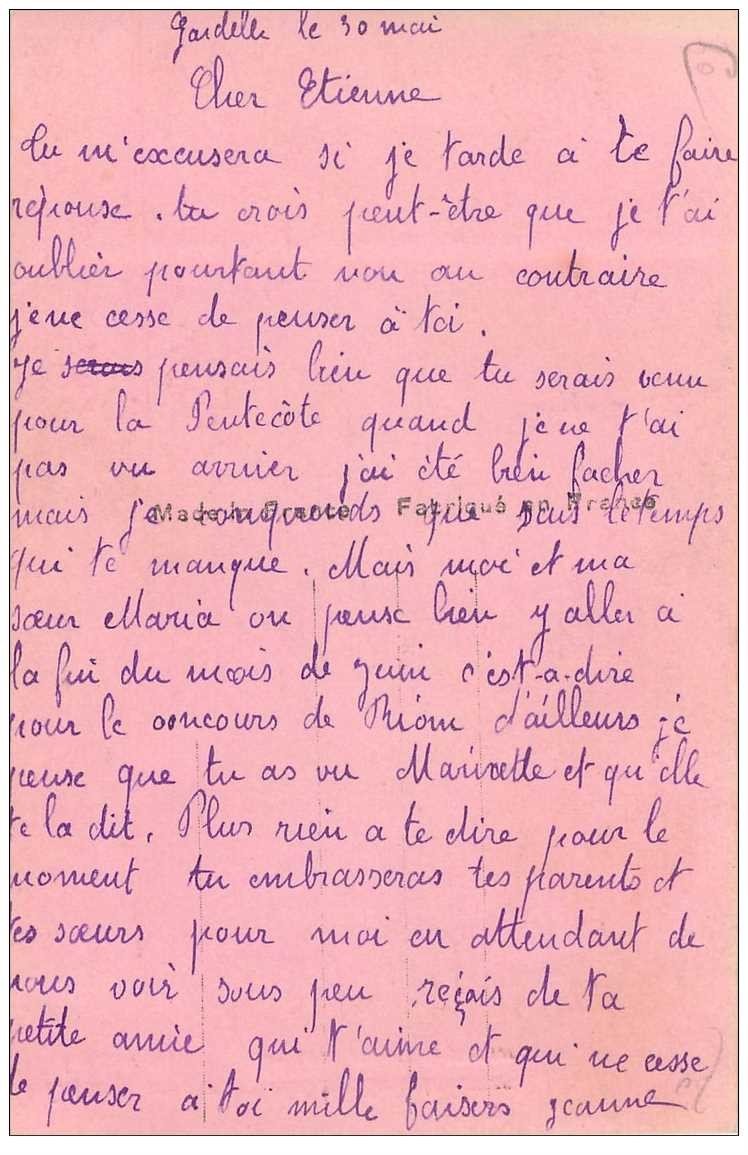 Gardelle le 30 mai
Cher Etienne
Tu m'excusera si je tarde a te faire
réponse. tu crois peut-être que je t'ai
oublier pourtant non au contraire
jene cesse de penser à toi.
je serais pensais bien que tu serais venu
pour la Pentecôte quand jene t'ai
pas vu arriver j'ai été bien facher
mais je conprends que sais le temps
Made in France Fabriqué en France
qui te manque. Mais moi et ma
sœur Maria on pense bien y aller a
la fin du mois de juin c'est-a-dire
pour le concours de Riom d'ailleurs je
pense que tu as vu et qu'elle
te la dit. Plus rien a te dire pour le
moment tu embrasseras tes parents et
tes sœurs pour moi en attendant de
vous voir sous peu reçois de ta
petite amie qui t'aime et qui ne cesse
de penser a toi mille baisers jeanne